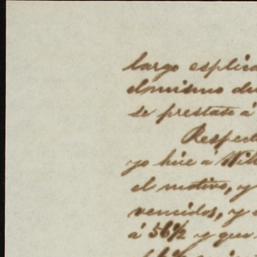 largo esplica
el mismo de
se prestato á
Respect
yo hice á Wil
el motivo, y
vencidos, y
á 56½ y que